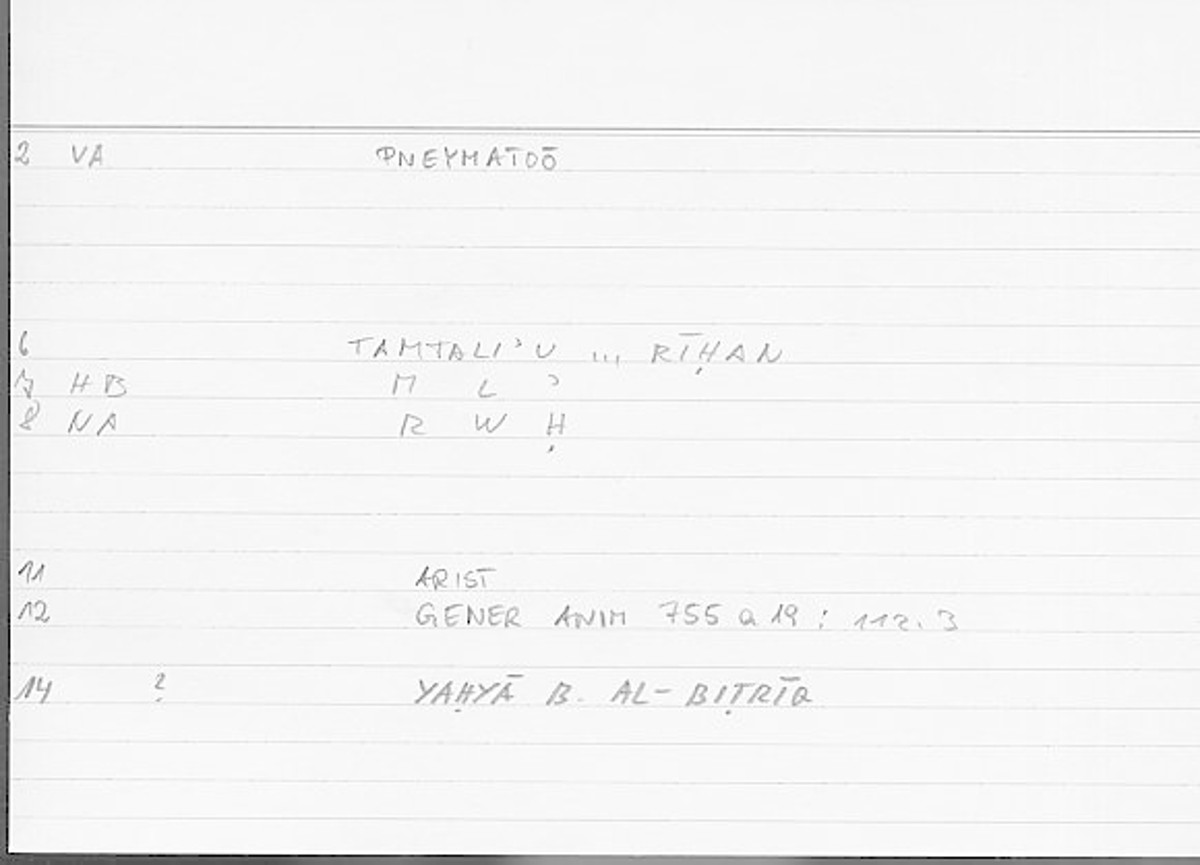 2 VA PNEYMATOŌ
6 TAMTALI'U ... RĪḤAN
7 HB M L ʾ
8 NA R W Ḥ
11 ARIST
12 GENER ANIM 755 a 19 : 112.3
14 ? YAḤYĀ B. AL-BIṬRĪQ